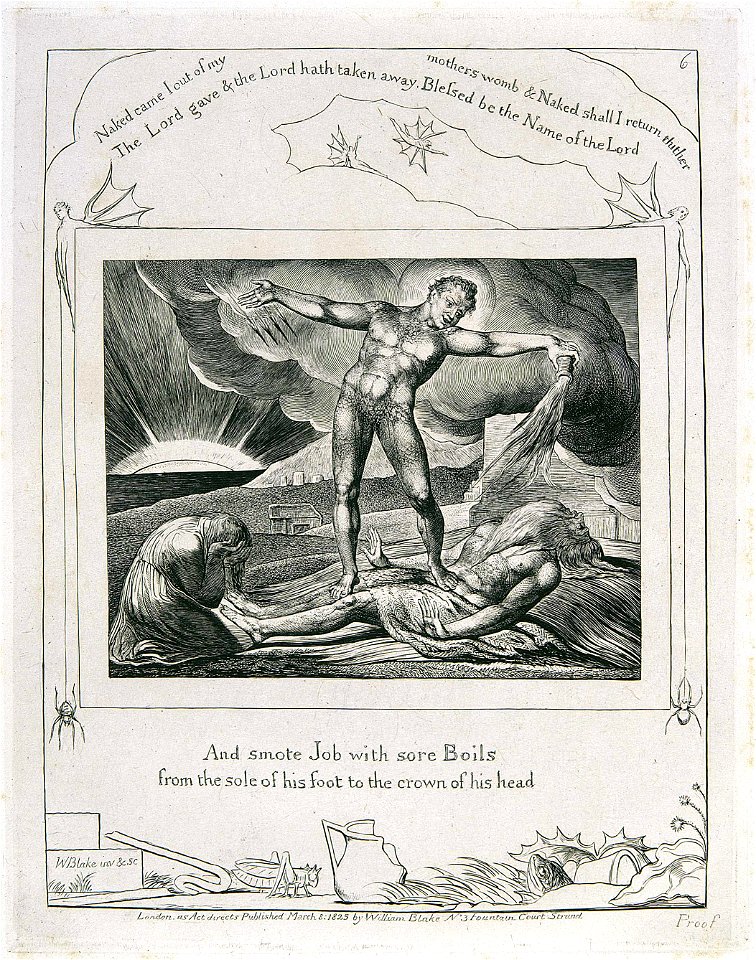 6
Naked came I out of my mothers womb & Naked shall I return thither
The Lord gave & the Lord hath taken away. Blessed be the Name of the Lord
And smote Job with sore Boils
from the sole of his foot to the crown of his head
WBlake inv & sc
London. as Act directs Published March 8: 1825 by William Blake No 3 Fountain Court Strand
Proof